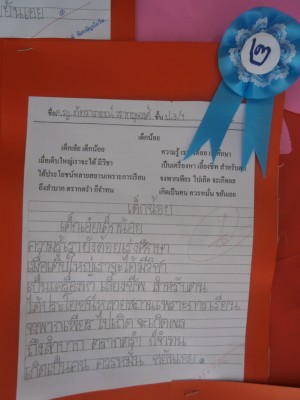 ๒
เด็กน้อย
เด็กเอ๋ย เด็กน้อย ความรู้ เรายังด้อย เร่งศึกษา
เมื่อเติบใหญ่เราจะได้ มีวิชา เป็นเครื่องหา เลี้ยงชีพ สำหรับตน
ได้ประโยชน์หลายสถานเพราะการเรียน จงพากเพียร ไปเถิด จะเกิดผล
ถึงลำบาก ตรากตรำ ก็จำทน เกิดเป็นคน ควรหมั่น ขยันเอย
เด็กน้อย
เด็กเอ๋ยเด็กน้อย
ความรู้เรายังด้อยเร่งศึกษา
เมื่อเติบใหญ่เราจะได้มีวิชา
เป็นเครื่องหา เลี้ยงชีพ สำหรับตน
ได้ประโยชน์หลายสถานเพราะการเรียน
จงพากเพียร ไปเถิด จะเกิดผล
ถึงลำบาก ตรากตรำ ก็จำทน
เกิดเป็นคน ควรหมั่น ขยันเอย